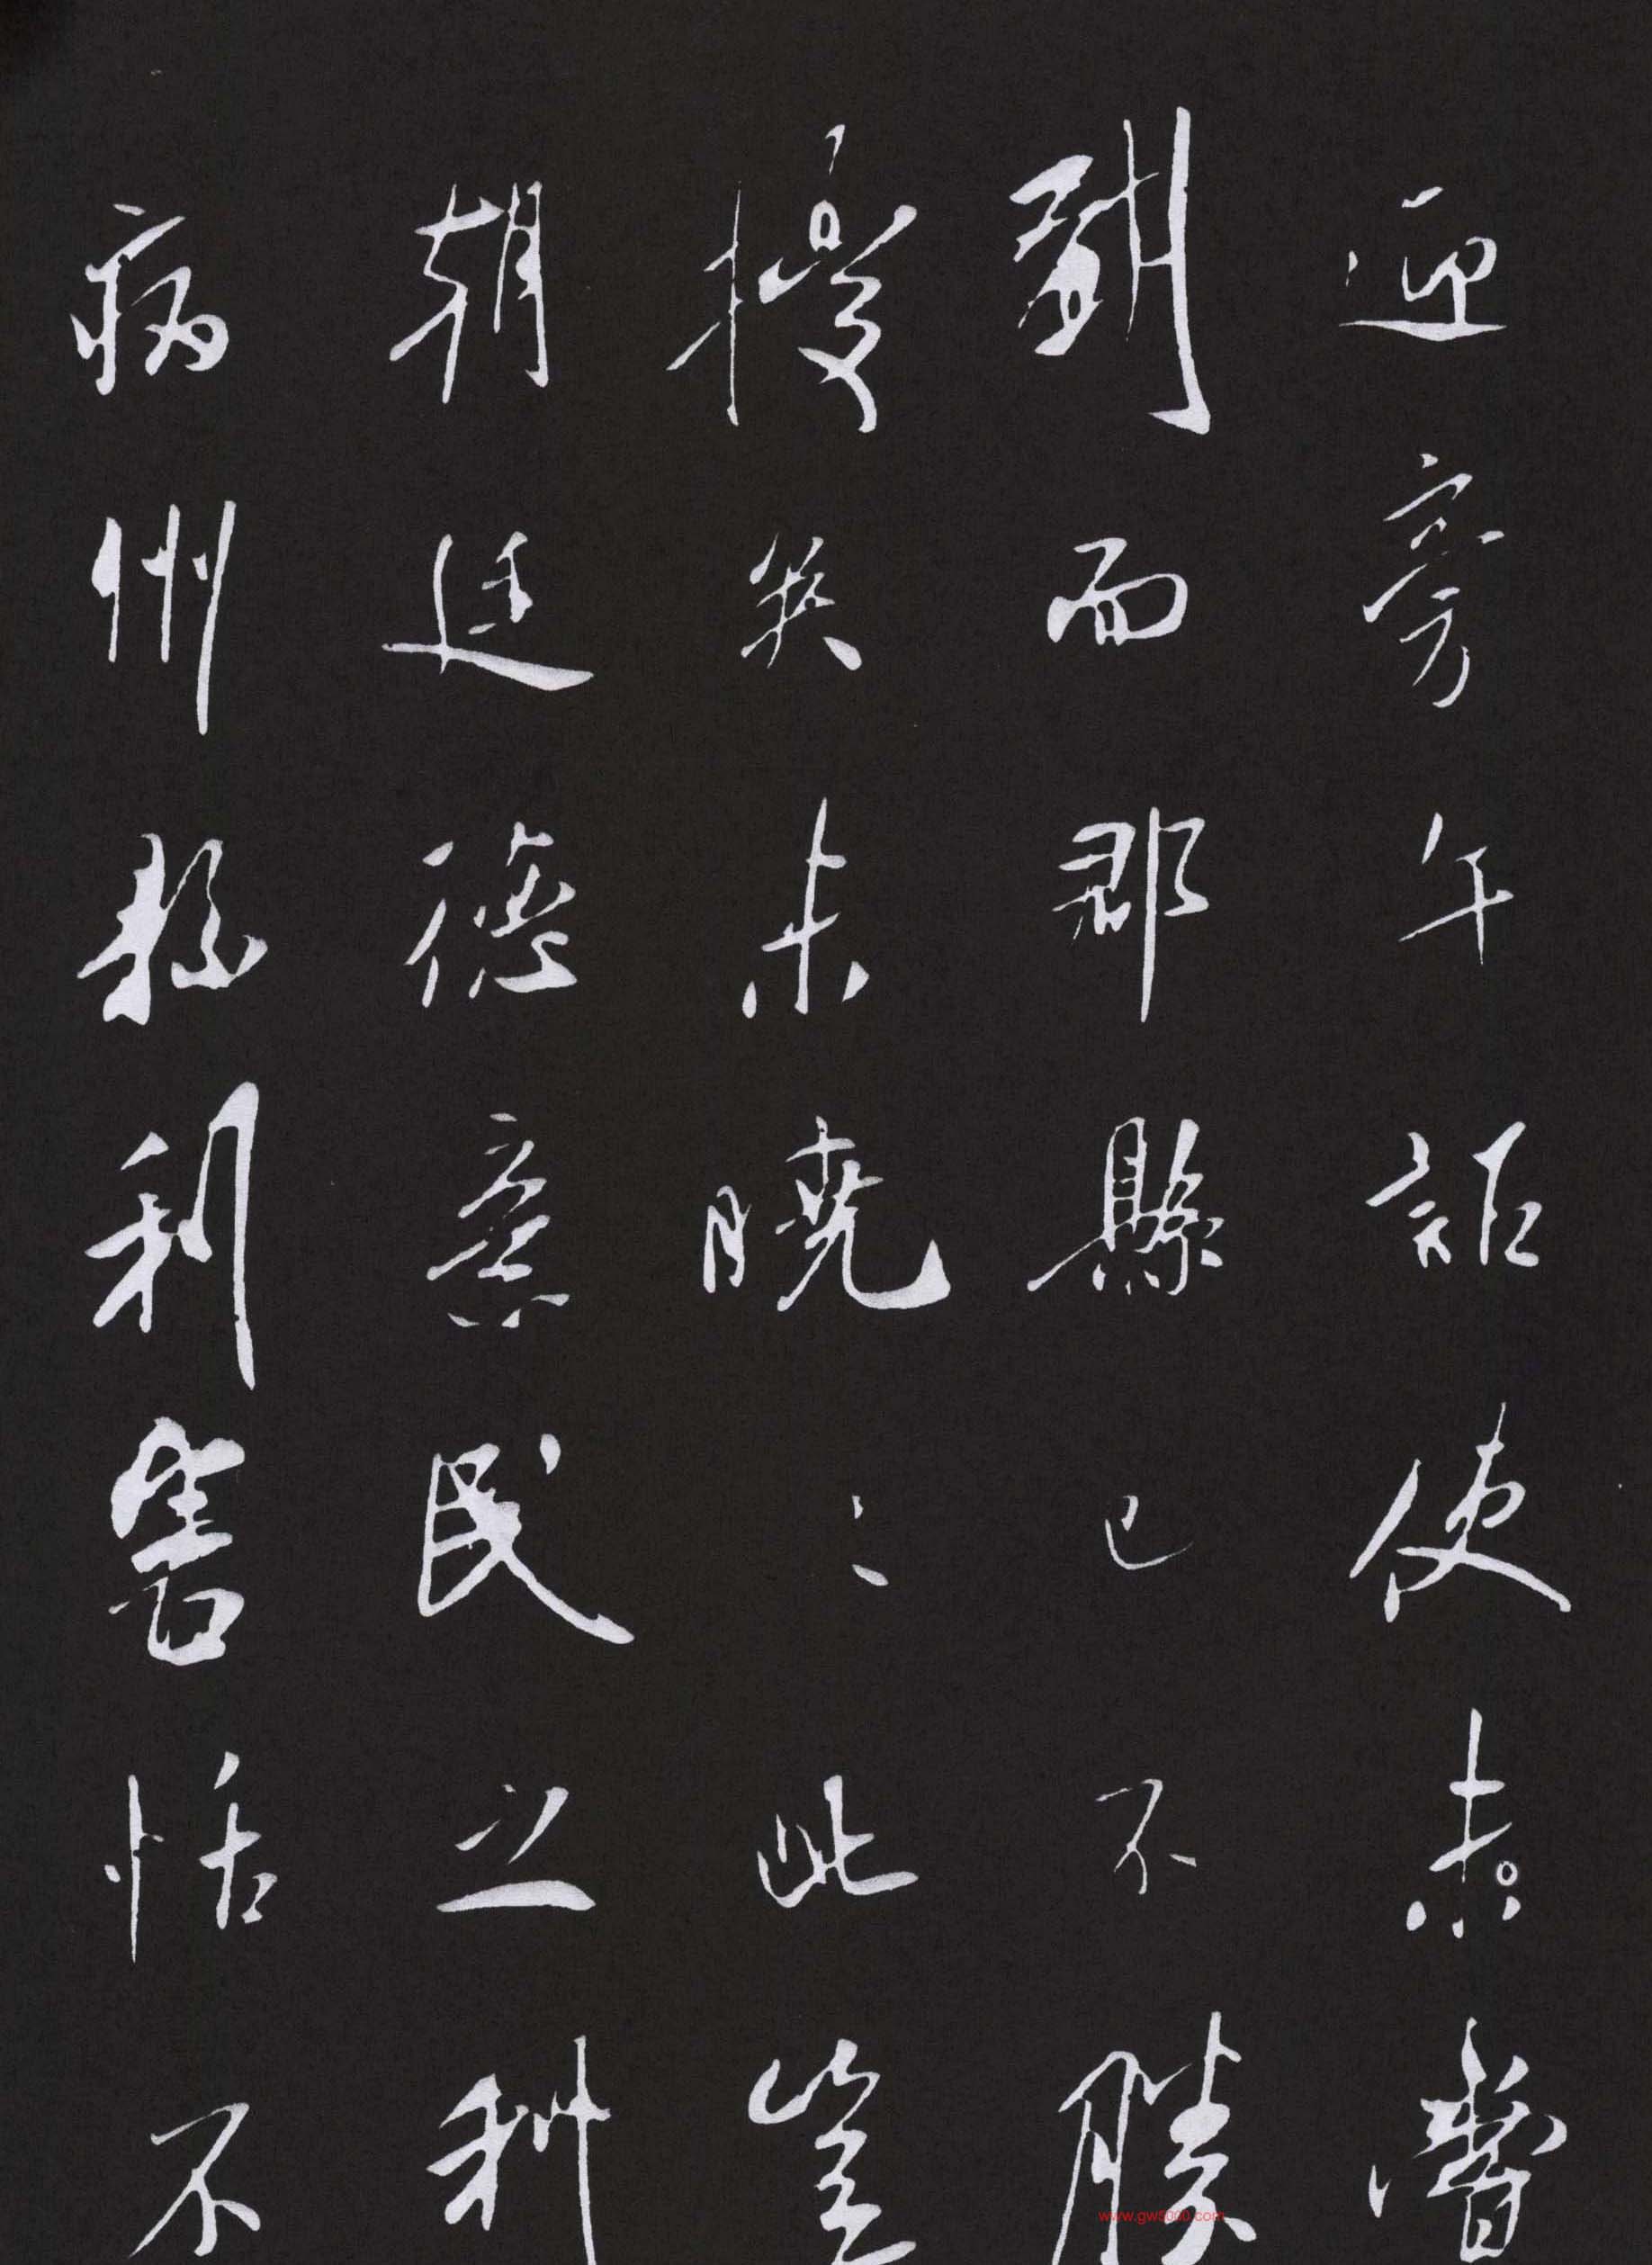 迎旁午詎使未嘗
到而郡縣已不勝
擾矣未曉〻此豈
朝廷德意民之利
病州縣利害恬不
www.gw5000.com